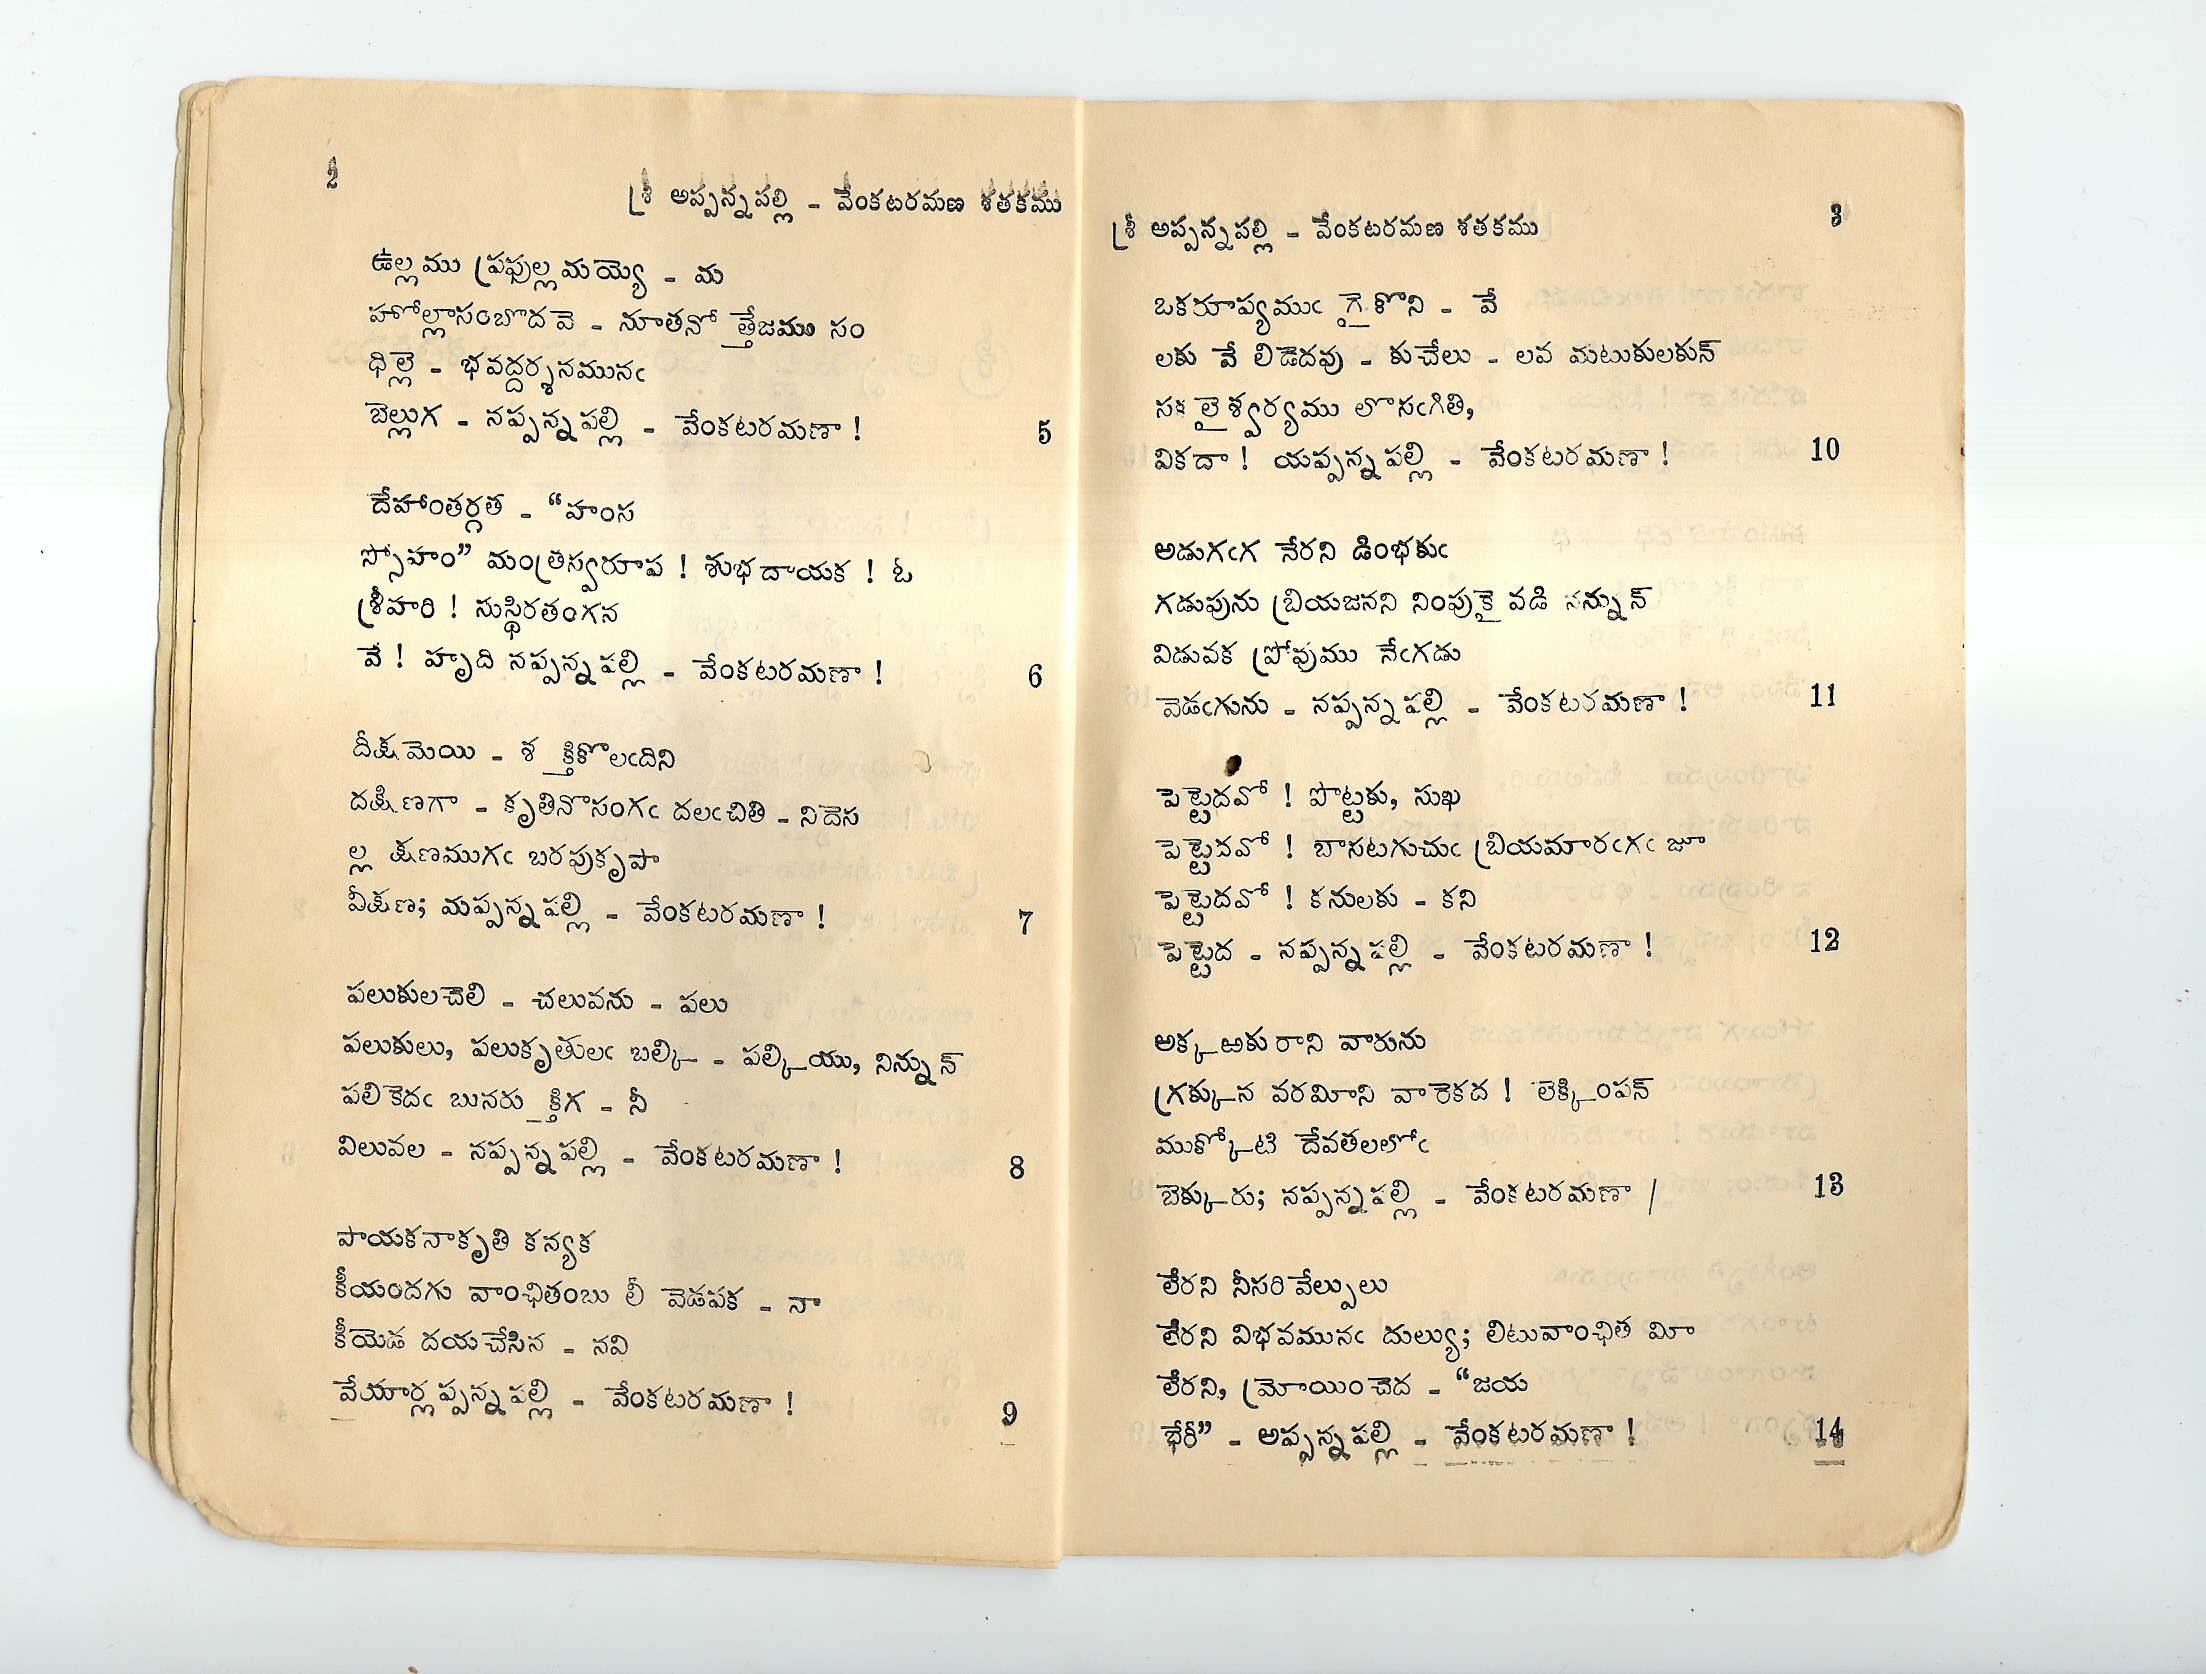 2
శ్రీ అప్పన్నపల్లి - వేంకటరమణ శతకము
ఉల్లము ప్రఫుల్లమయ్యె - మ
హోల్లాసంబొదవె - నూతనోత్తేజము సం
ధిల్లె - భవద్దర్శనమునఁ
బెల్లుగ - నప్పన్నపల్లి - వేంకటరమణా ! 5
దేహాంతర్గత - “హంస
స్సోహం” మంత్రస్వరూప ! శుభదాయక ! ఓ
శ్రీహరి ! సుస్థిరతంగన
వే ! హృది నప్పన్నపల్లి - వేంకటరమణా ! 6
దీక్షమెయి - శక్తికొలఁదిని
దక్షిణగా - కృతినొసంగఁ దలఁచితి - నిదెస
ల్ల క్షణముగఁ బరపుకృపా
వీక్షణ; మప్పన్నపల్లి - వేంకటరమణా ! 7
పలుకులచెలి - చలువను - పలు
పలుకులు, పలుకృతులఁ బల్కి - పల్కియు, నిన్నున్
పలికెదఁ బునరుక్తిగ - నీ
విలువల - నప్పన్నపల్లి - వేంకటరమణా ! 8
పాయకనాకృతి కన్యక
కీయందగు వాంఛితంబు లీ వెడపక - నా
కీయెడ దయచేసిన - నవి
వేయార్లప్పన్నపల్లి - వేంకటరమణా ! 9
3
శ్రీ అప్పన్నపల్లి - వేంకటరమణ శతకము
ఒకరూప్యముఁ గైకొని - వే
లకు వే లిడెదవు - కుచేలు - లవ మటుకులకున్
సకలైశ్వర్యము లొసఁగితి,
వికదా ! యప్పన్నపల్లి - వేంకటరమణా ! 10
అడుగఁగ నేరని డింభకుఁ
గడుపును బ్రియజనని నింపుకై వడి నన్నున్
విడువక ప్రోవుము నేఁగడు
వెడఁగును - నప్పన్నపల్లి - వేంకటరమణా ! 11
పెట్టెదవో ! పొట్టకు, సుఖ
పెట్టెదవో ! బాసటగుచుఁ బ్రియమారఁగఁ జూ
పెట్టెదవో ! కనులకు - కని
పెట్టెద - నప్పన్నపల్లి - వేంకటరమణా ! 12
అక్కఱకు రాని వారును
గ్రక్కున వరమీని వారెకద ! లెక్కింపన్
ముక్కోటి దేవతలలోఁ
బెక్కురు; నప్పన్నపల్లి - వేంకటరమణా / 13
లేరని నీసరివేల్పులు
లేరని విభవమునఁ దుల్యు; లిటువాంఛిత మీ
లేరని, మ్రోయించెద - “జయ
భేరీ” - అప్పన్నపల్లి - వేంకటరమణా ! 14